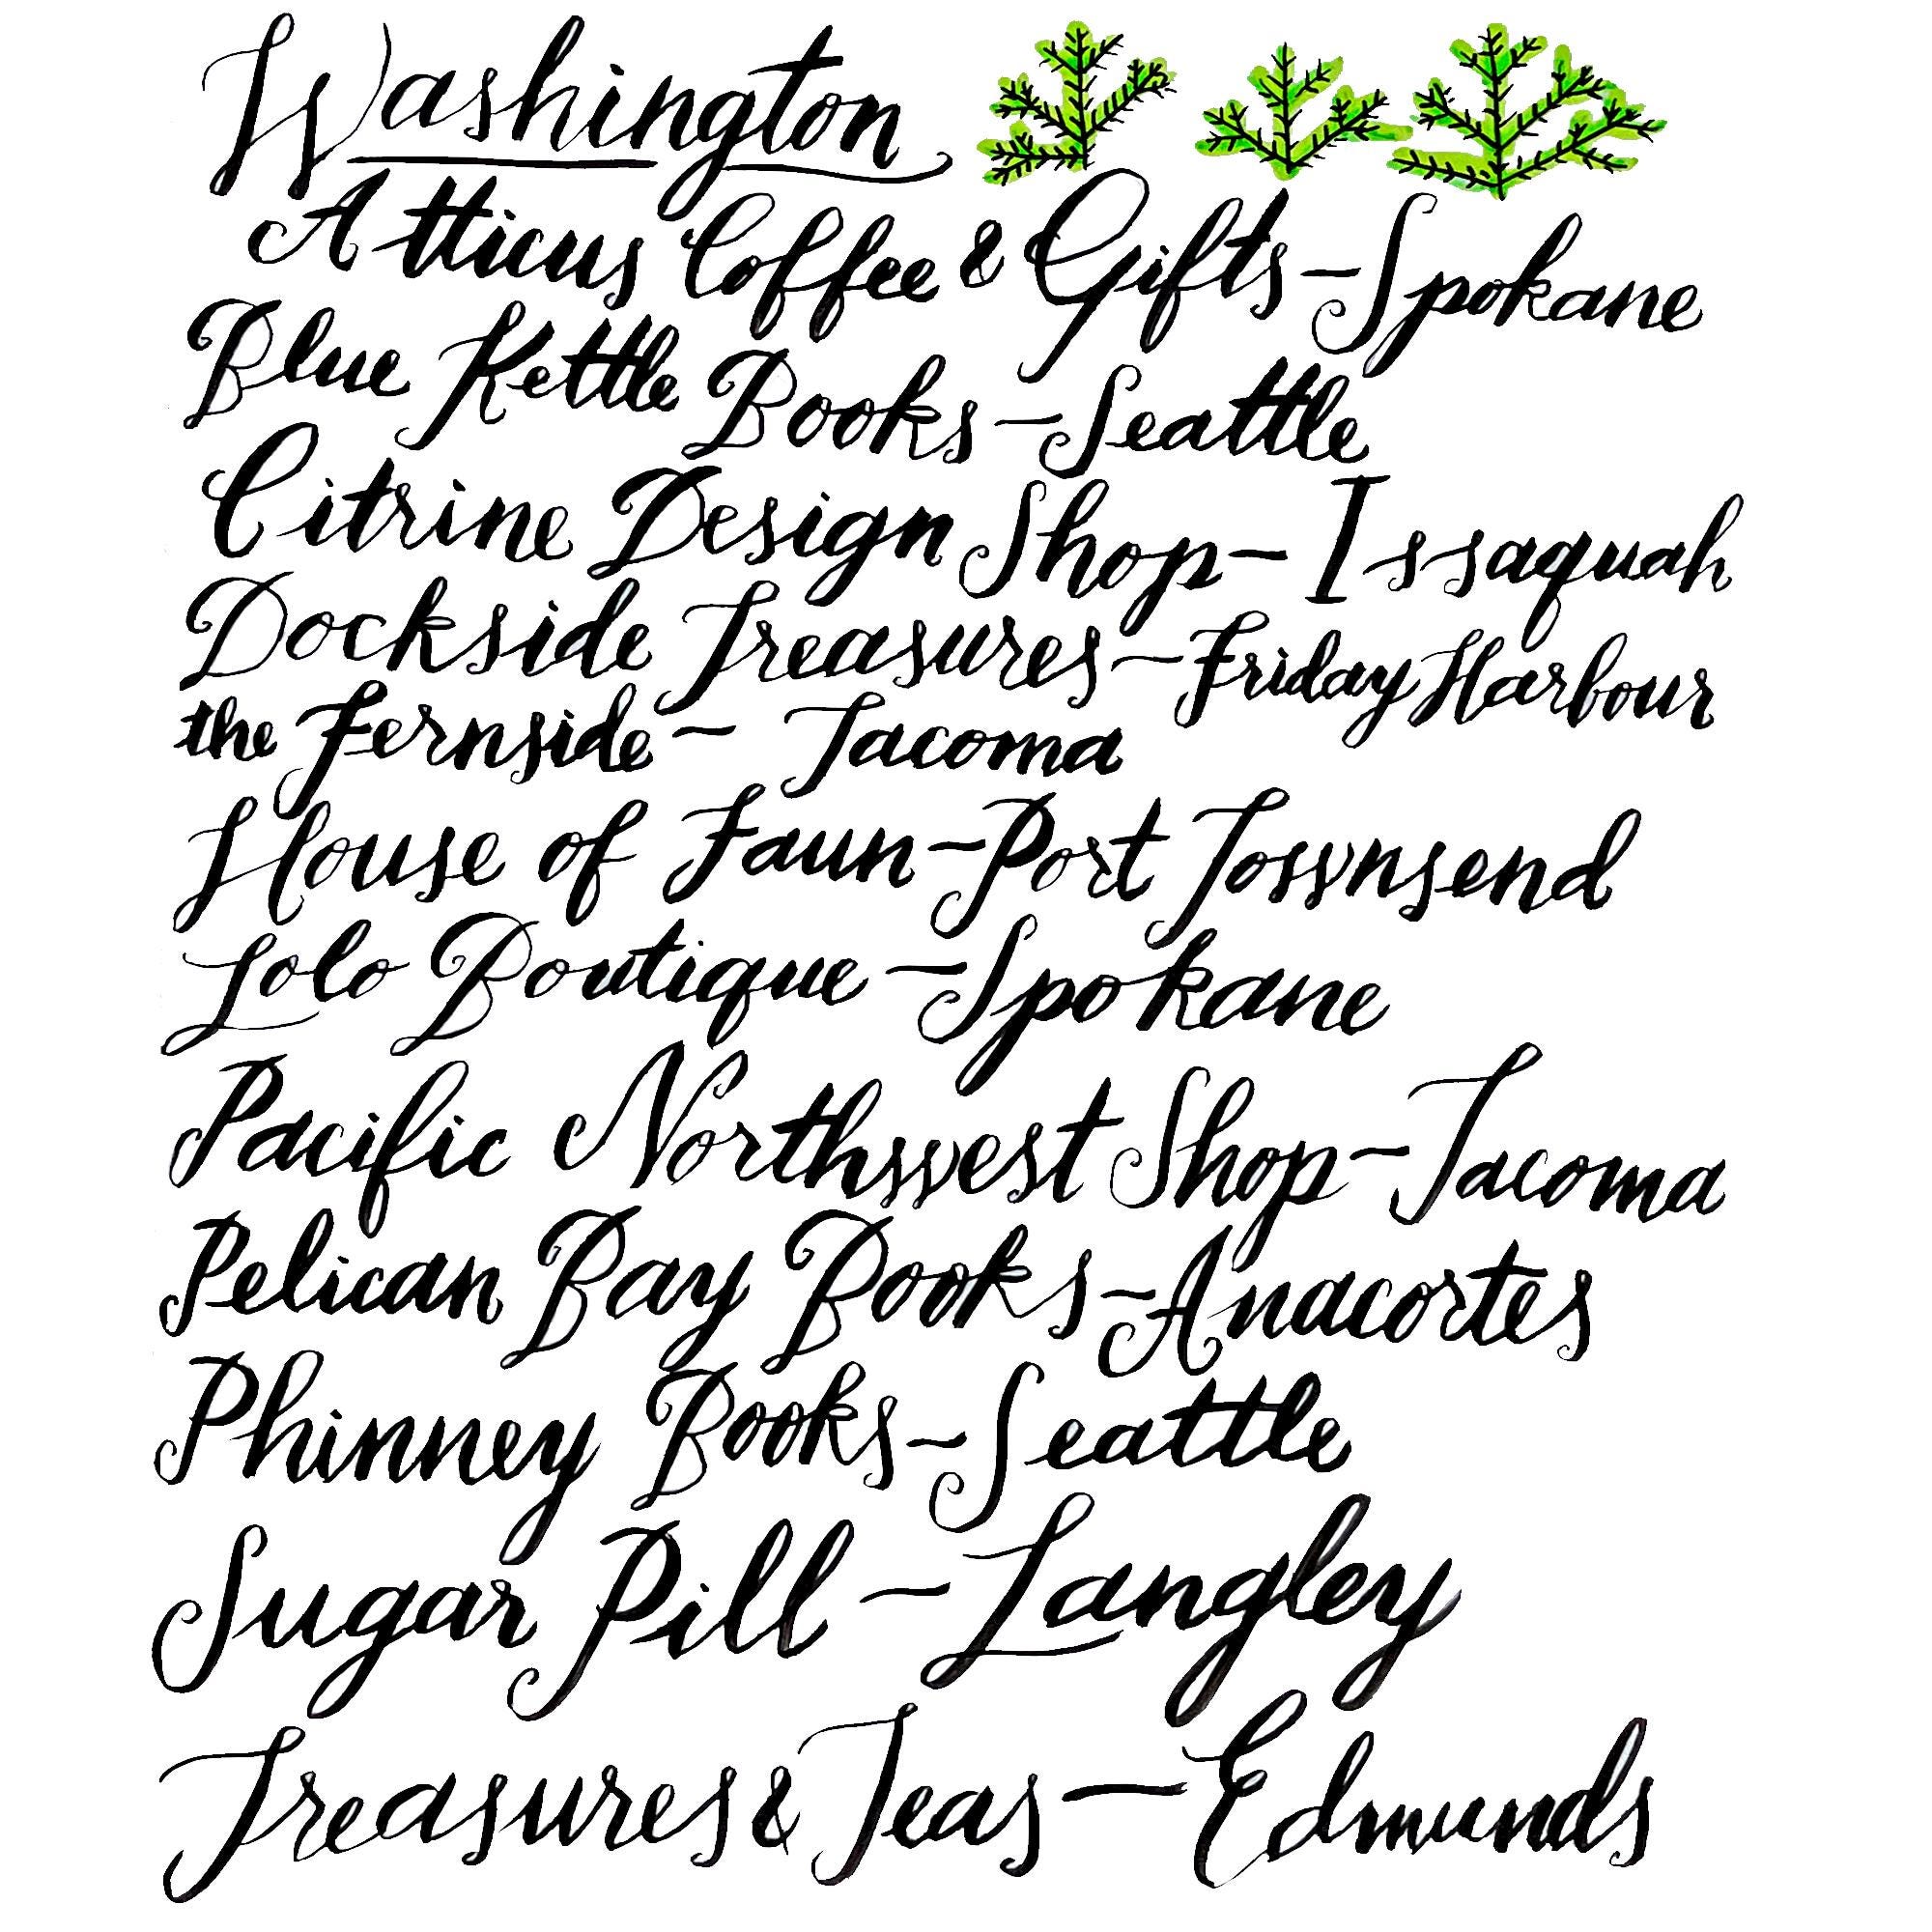 Washington
Atticus Coffee & Gifts - Spokane
Blue Kettle Books - Seattle
Citrine Design Shop - Issaquah
Dockside Treasures - Friday Harbour
the Fernside - Tacoma
House of Faun - Port Townsend
Lolo Boutique - Spokane
Pacific Northwest Shop - Tacoma
Pelican Bay Books - Anacortes
Phinney Books - Seattle
Sugar Pill - Langley
Treasures & Teas - Edmunds